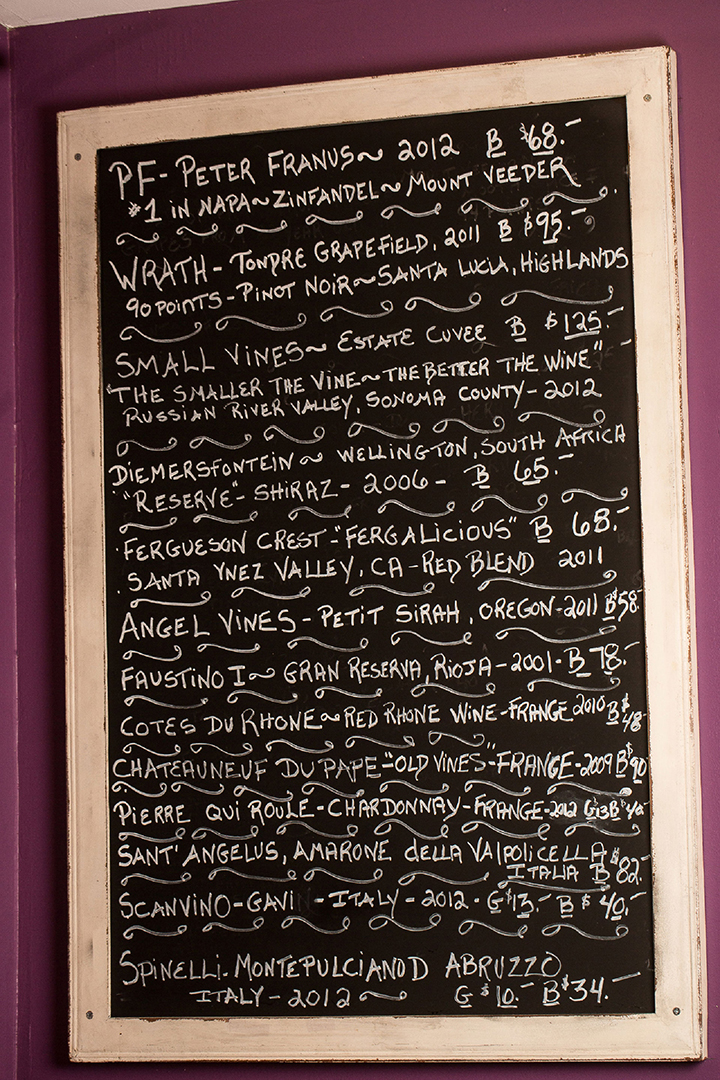 PF- PETER FRANUS~ 2012 B $68.-
#1 IN NAPA~ZINFANDEL~ MOUNT VEEDER
WRATH- TONDRE GRAPEFIELD, 2011 B $95.-
90 POINTS- PINOT NOIR~SANTA LUCIA, HIGHLANDS
SMALL VINES~ ESTATE CUVEE B $125.-
"THE SMALLER THE VINE~ THE BETTER THE WINE"
RUSSIAN RIVER VALLEY, SONOMA COUNTY- 2012
DIEMERSFONTEIN~ WELLINGTON, SOUTH AFRICA
"RESERVE"- SHIRAZ- 2006- B 65.-
FERGUESON CREST-"FERGALICIOUS" B 68.-
SANTA YNEZ VALLEY, CA-RED BLEND 2011
ANGEL VINES- PETIT SIRAH, OREGON-2011 B$58.
FAUSTINO I~ GRAN RESERVA, RIOJA-2001- B 78.-
COTES DU RHONE~RED RHONE WINE-FRANGE 2010 B $48-
CHATEAUNEUF DU PAPE-"OLD VINES"-FRANGE-2009 B$90
PIERRE QUI ROULE-CHARDONNAY-FRANGE-2012 G13 B$40-
SANT'ANGELUS, AMARONE della VALPOLICELLA
ITALIA B $82.-
SCANVINO-GAVI - ITALY - 2012 - G $13.- B $40.-
SPINELLI- MONTEPULCIANO D ABRUZZO
ITALY - 2012~ G $10.- B $34.-